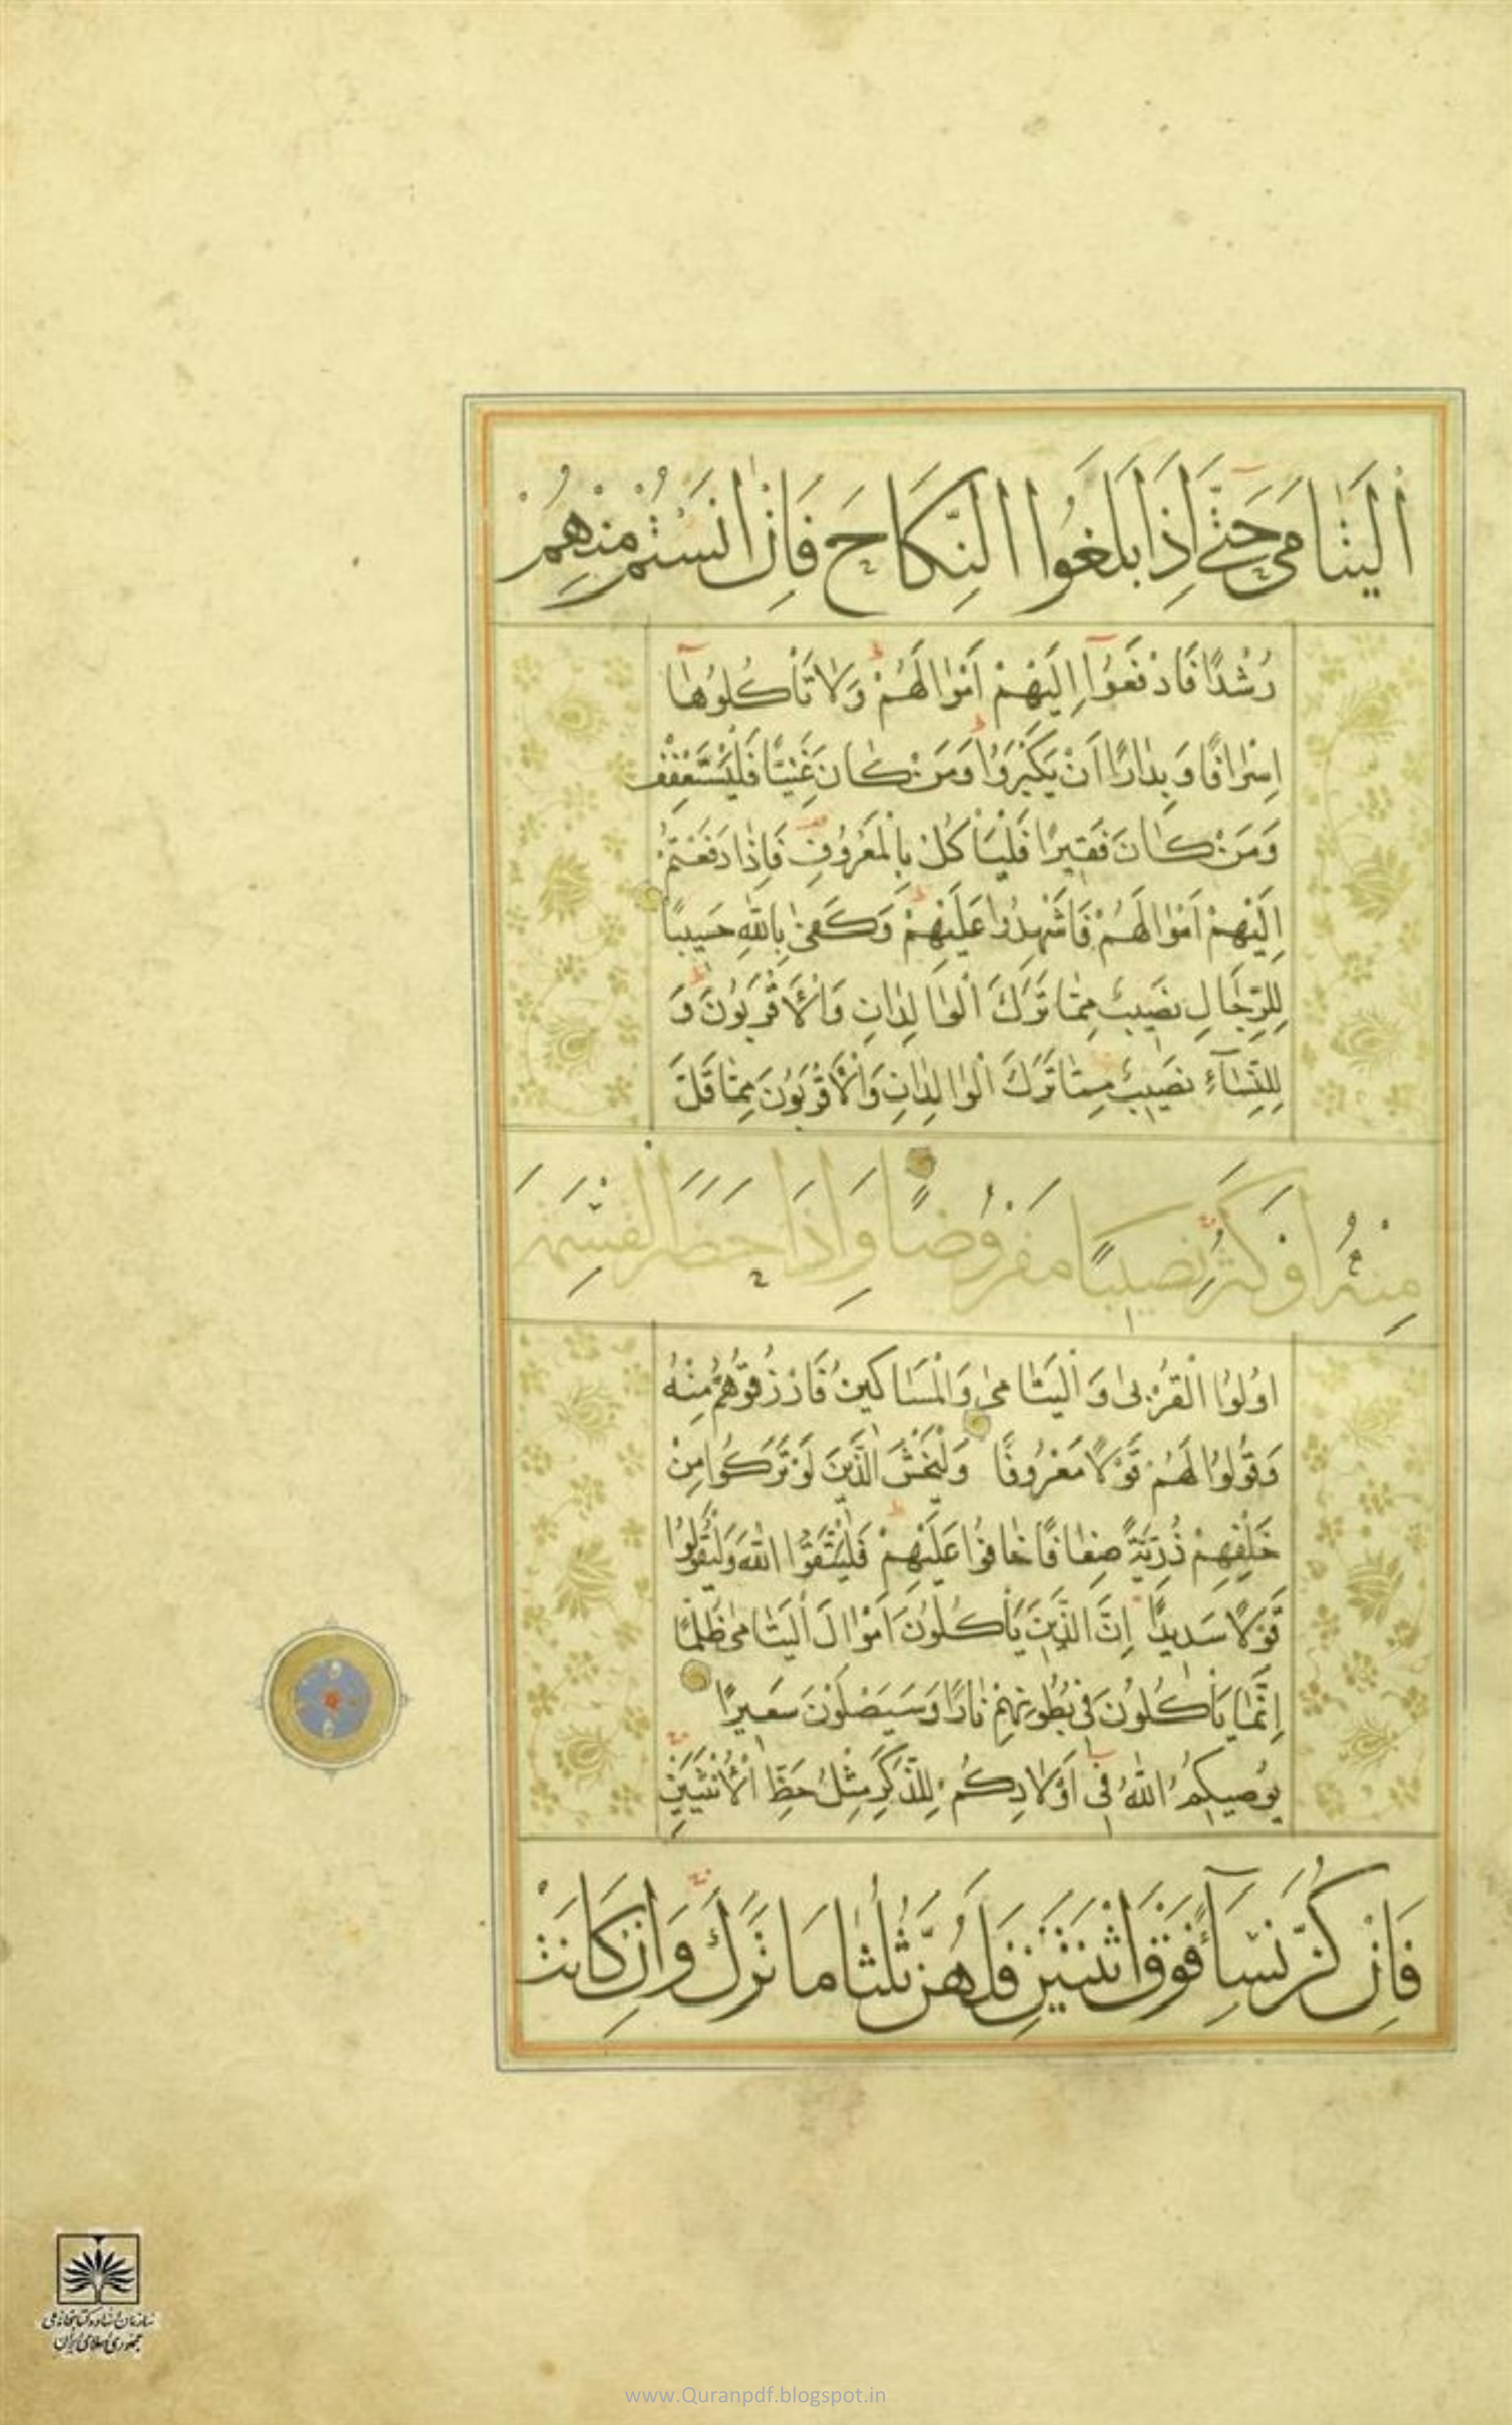 اَلْيَتٰامىٰ حَتّٰى اِذٰا بَلَغُوا النِّكٰاحَ فَاِنْ اٰنَسْتُمْ مِنْهُمْ
رُشْدًا فَادْفَعُوٓا اِلَيْهِمْ اَمْوٰالَهُمْ وَلٰا تَأْكُلُوهٰٓا
اِسْرٰافًا وَ بِدٰارًا اَنْ يَكْبَرُوا وَمَنْ كٰانَ غَنِيًّا فَلْيَسْتَعْفِفْ
وَمَنْ كٰانَ فَقٖيرًا فَلْيَأْكُلْ بِالْمَعْرُوفِ فَاِذٰا دَفَعْتُمْ
اِلَيْهِمْ اَمْوٰالَهُمْ فَاَشْهِدُوا عَلَيْهِمْ وَكَفىٰ بِاللّٰهِ حَسٖيبًا
لِلرِّجٰالِ نَصٖيبٌ مِمّٰا تَرَكَ الْوٰالِدٰانِ وَالْاَقْرَبُونَ وَ
لِلنِّسٰٓاءِ نَصٖيبٌ مِمّٰا تَرَكَ الْوٰالِدٰانِ وَالْاَقْرَبُونَ مِمّٰا قَلَّ
مِنْهُ اَوْ كَثُرَ نَصٖيبًا مَفْرُوضًا وَاِذٰا حَضَرَ الْقِسْمَةَ
اُولُوا الْقُرْبىٰ وَ الْيَتٰامىٰ وَالْمَسٰاكٖينُ فَارْزُقُوهُمْ مِنْهُ
وَقُولُوا لَهُمْ قَوْلًا مَعْرُوفًا وَلْيَخْشَ الَّذٖينَ لَوْ تَرَكُوا مِنْ
خَلْفِهِمْ ذُرِّيَّةً ضِعٰافًا خٰافُوا عَلَيْهِمْ فَلْيَتَّقُوا اللّٰهَ وَلْيَقُولُوا
قَوْلًا سَدٖيدًا اِنَّ الَّذٖينَ يَأْكُلُونَ اَمْوٰالَ الْيَتٰامىٰ ظُلْمًا
اِنَّمٰا يَأْكُلُونَ فٖى بُطُونِهِمْ نٰارًا وَسَيَصْلَوْنَ سَعٖيرًا
يُوصٖيكُمُ اللّٰهُ فٖٓى اَوْلٰادِكُمْ لِلذَّكَرِ مِثْلُ حَظِّ الْاُنْثَيَيْنِ
فَاِنْ كُنَّ نِسٰٓاءً فَوْقَ اثْنَتَيْنِ فَلَهُنَّ ثُلُثٰا مٰا تَرَكَ وَاِنْ كٰانَتْ
سازمان اسناد و کتابخانه ملی
جمهوری اسلامی ایران
www.Quranpdf.blogspot.in